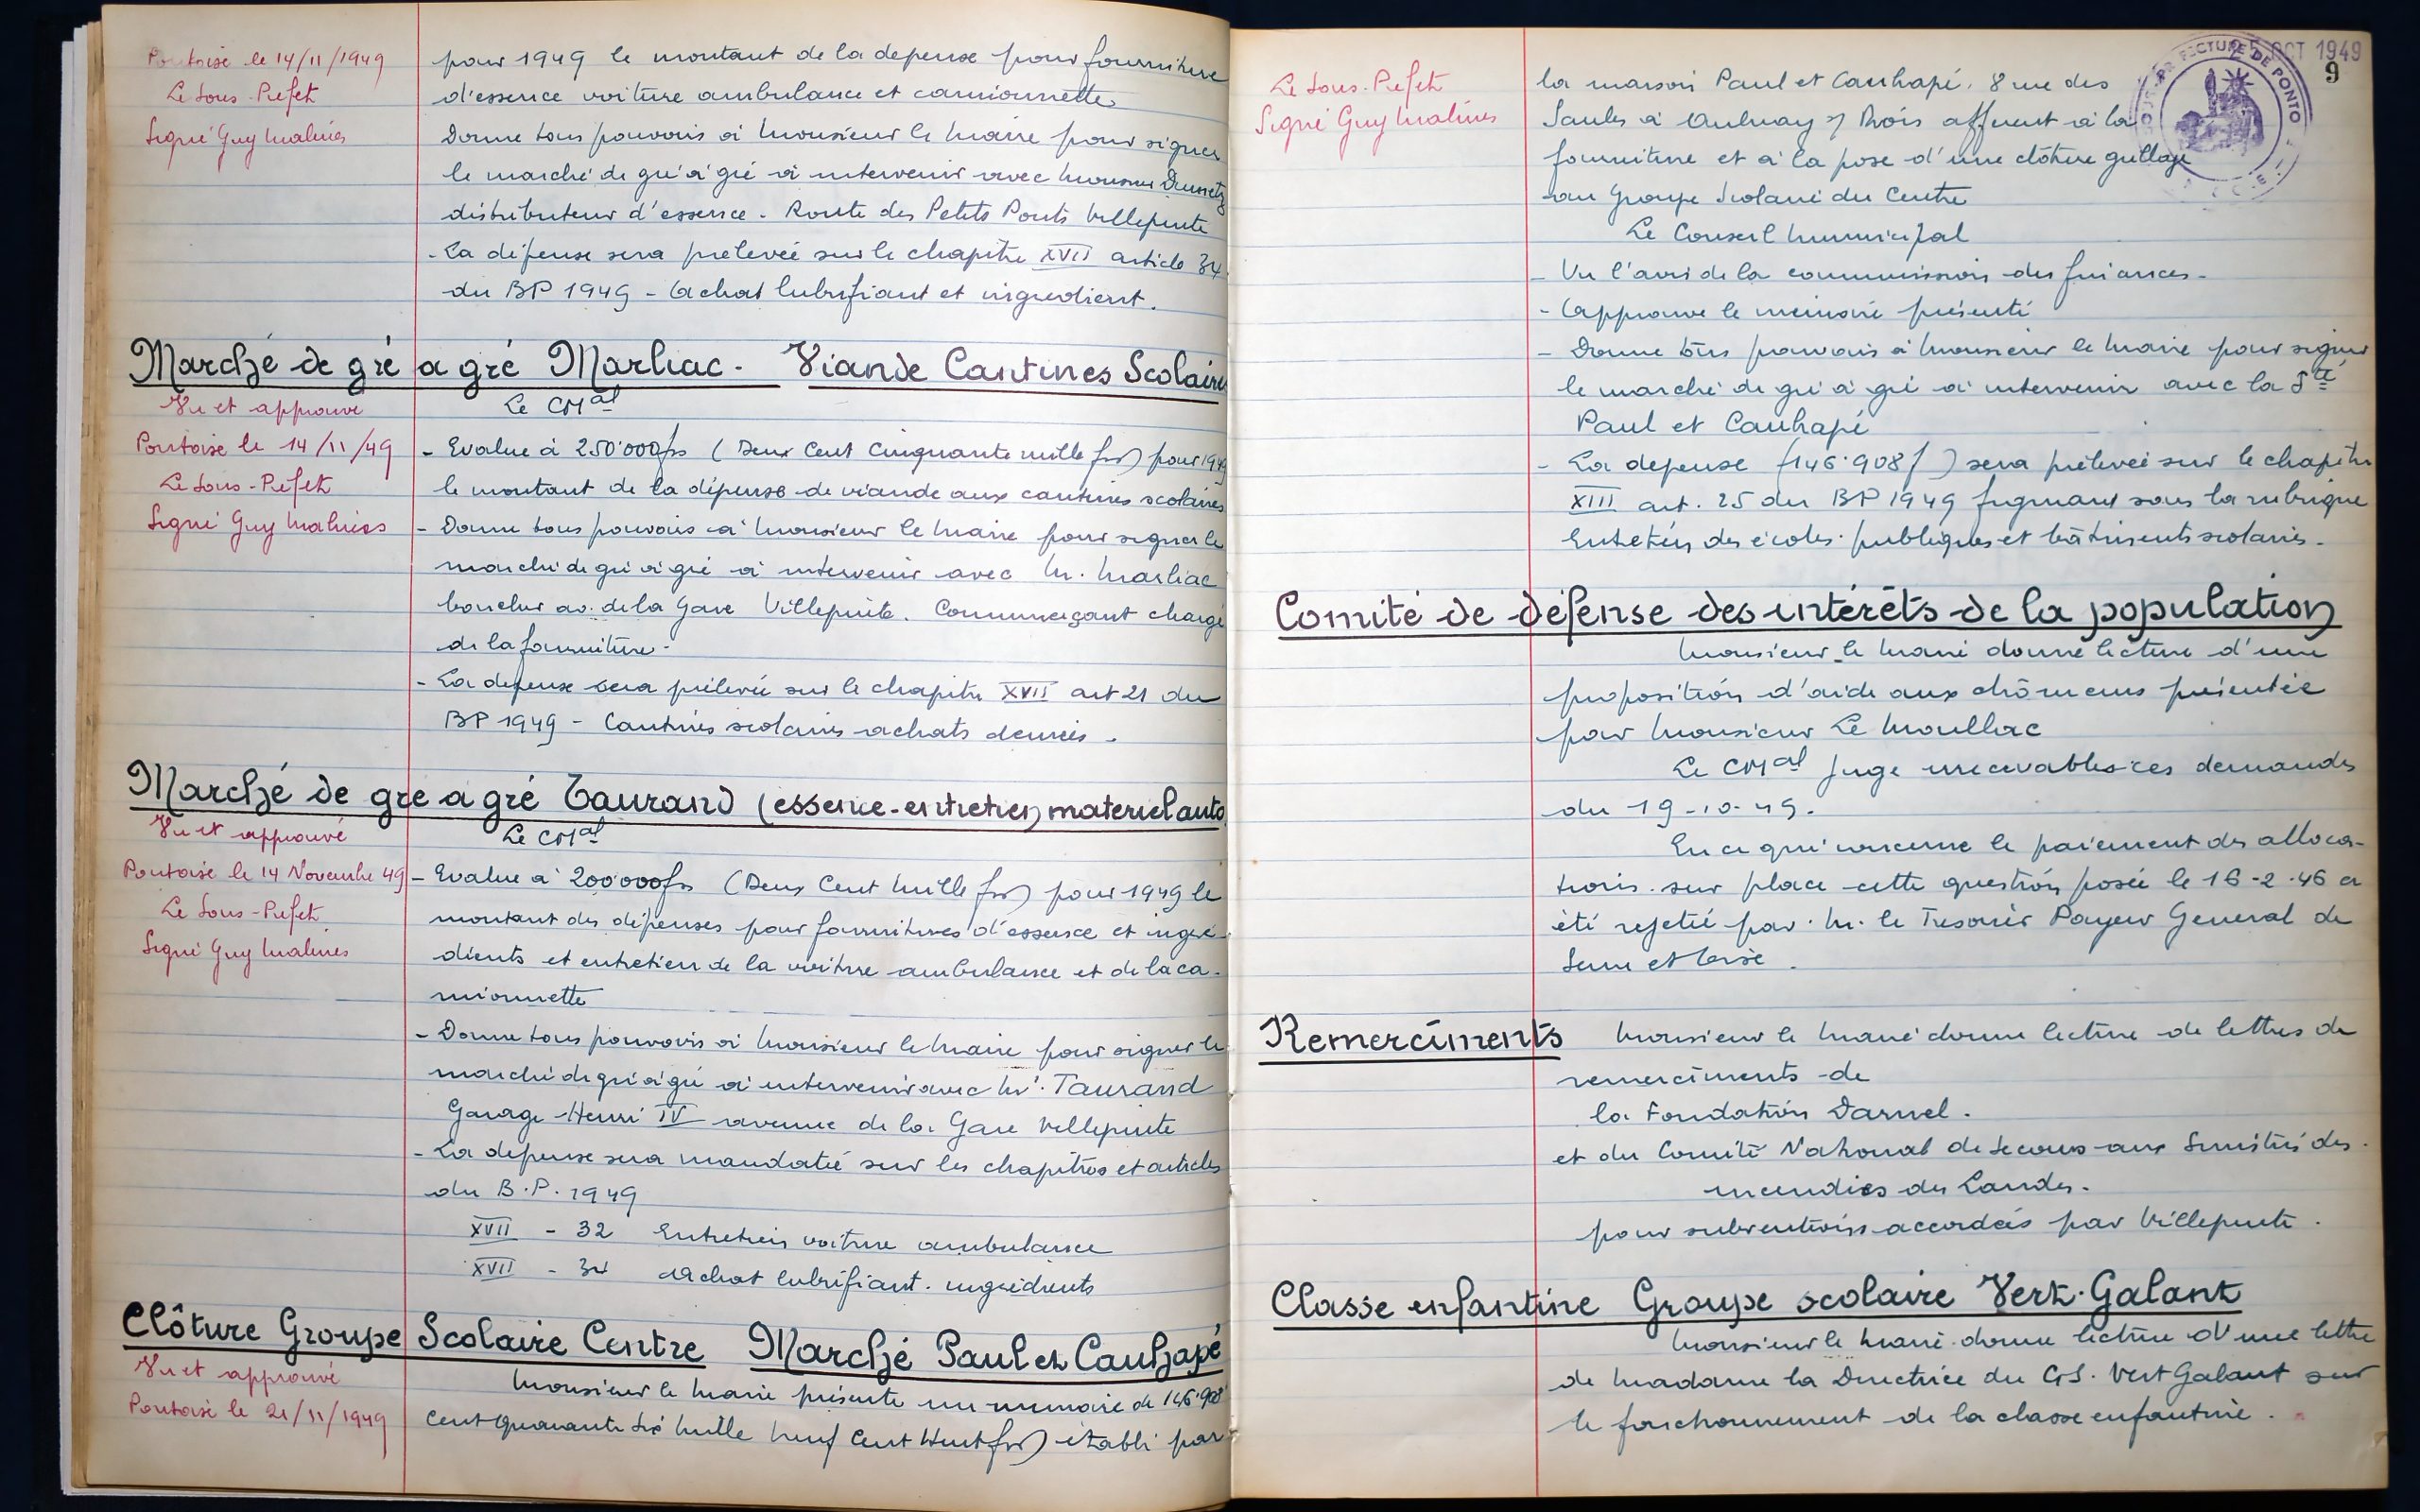 Pontoise le 14/11/1949
Le Sous-Préfet
Signé Guy Malines
pour 1949 le montant de la depense pour fourniture
d'essence voiture ambulance et camionnette
Donne tous pouvoirs à Monsieur le Maire pour signer
le marché de gré à gré à intervenir avec Monsieur
distributeur d'essence - Route des Petits Ponts Villepinte
- La dépense sera prélevée sur le chapitre XVII article 34
du BP 1949 - Achat lubrifiant et ingredient.
Marché de gré a gré Marliac - Viande Cantines Scolaires
Vu et approuvé
Pontoise le 14/11/49
Le Sous-Préfet
Signé Guy Malines
Le CMal
- Evalue à 250.000frs (Deux Cent Cinquante mille frs) pour 1949
le montant de la dépense de viande aux cantines scolaires
- Donne tous pouvoirs à Monsieur le Maire pour signer le
marché de gré à gré à intervenir avec M. Marliac
boucher av. de la Gare Villepinte. Commerçant chargé
de la fourniture -
- La depense sera prélevée sur le chapitre XVII art 21 du
BP 1949 - Cantines scolaires achats denrées -
Marché de gré a gré Taurand (essence-entretien materiel auto
Vu et approuvé
Pontoise le 14 Novembre 49
Le Sous-Préfet
Signé Guy Malines
Le CMal
- Evalue à 200.000frs (Deux Cent Mille frs) pour 1949 le
montant des dépenses pour fournitures d'essence et ingré-
dients et entretien de la voiture ambulance et de la ca-
mionnette
- Donne tous pouvoirs à Monsieur le Maire pour signer le
marché de gré à gré à intervenir avec Mr. Taurand
Garage Henri IV avenue de la Gare Villepinte
- La depense sera mandatée sur les chapitres et articles
du B.P. 1949
XVII - 32 Entretien voiture ambulance
XVII - 34 Achat lubrifiant - ingrédients
Clôture Groupe Scolaire Centre Marché Paul et Cauhapé
Vu et approuvé
Pontoise le 21/11/1949
Monsieur le Maire présente un memoire de 146.908
Cent quarante six mille Neuf Cent Huit frs) établi par
25 OCT 1949
9
SOUS-PREFECTURE DE PONTOISE
Le Sous-Préfet
Signé Guy Malines
la maison Paul et Cauhapé, 8 rue des
Saules à Aulnay s/ Bois afferent à la
fourniture et à la pose d'une clôture grillage
au Groupe Scolaire du Centre
Le Conseil Municipal
- Vu l'avis de la commission des finances -
- Approuve le memoire présenté
- Donne tous pouvoirs à Monsieur le Maire pour signer
le marché de gré à gré à intervenir avec la Sté
Paul et Cauhapé
- La depense (146.908f) sera prélevée sur le chapitre
XIII art. 25 du BP 1949 figurant sous la rubrique
Entretien des écoles publiques et bâtiments scolaires -
Comité de défense des intérêts de la population
Monsieur le Maire donne lecture d'une
proposition d'aide aux chômeurs présentée
par Monsieur Le Moullac
Le CMal Juge irrecevables ces demandes
du 19-10-49.
En ce qui concerne le paiement des alloca-
tions sur place cette question posée le 16-2-46 a
été rejetée par M. le Tresorier Payeur General de
Seine et Oise.
Remerciments Monsieur le Maire donne lecture de lettres de
remerciments de
la Fondation Darnel.
et du Comité National de Secours aux Sinistrés des
incendies des Landes.
pour subventions accordées par Villepinte.
Classe enfantine Groupe scolaire Vert-Galant
Monsieur le Maire donne lecture d'une lettre
de Madame la Directrice du GS. Vert Galant sur
le fonctionnement de la classe enfantine.